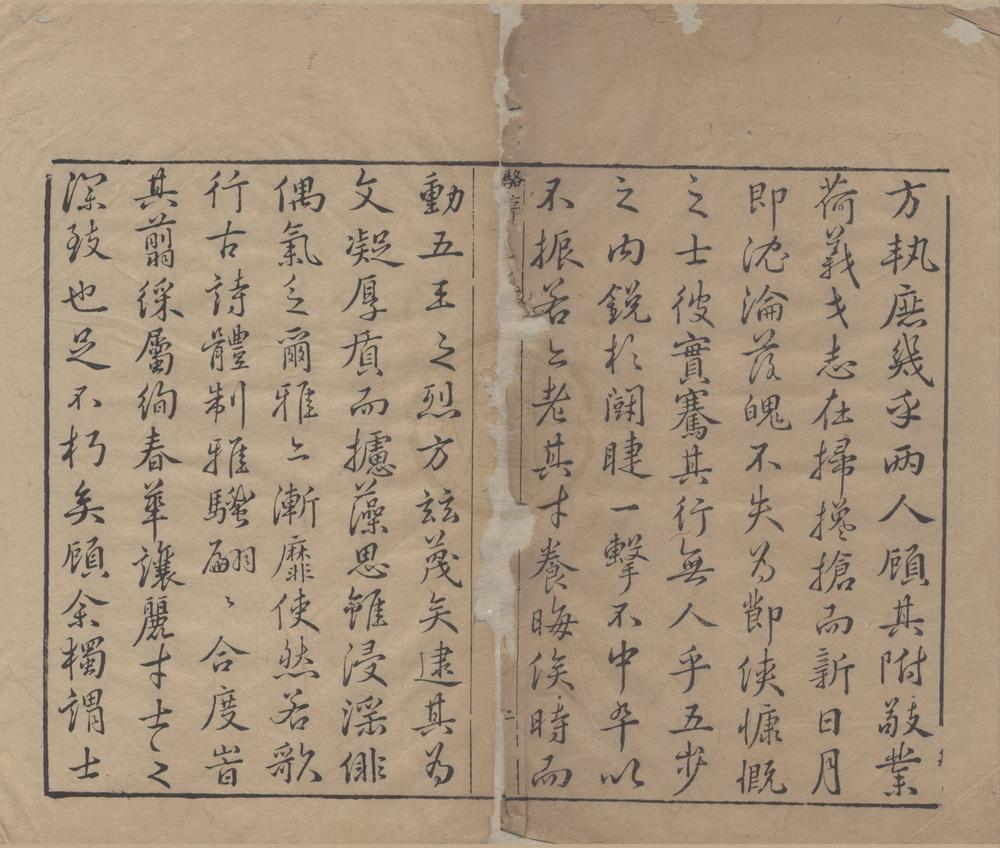 方執庶幾乎兩人顧其附敬業
荷義戈志在掃攙搶而新日月
即沈淪落魄不失為節俠慷慨
之士彼實騫其行無人乎五步
之內銳於闘睫一擊不中卒以
不振若令老其才養晦俟時而
駱序 二
動五王之烈方玆蔑矣逮其為
文凝厚質而攄藻思雖浸淫俳
偶氣乏爾雅亦漸靡使然若歌
行古詩體制雅騷翩〻合度旹
其翦綵屬絢春華讓麗才士之
深致也足不朽矣顧余獨謂士